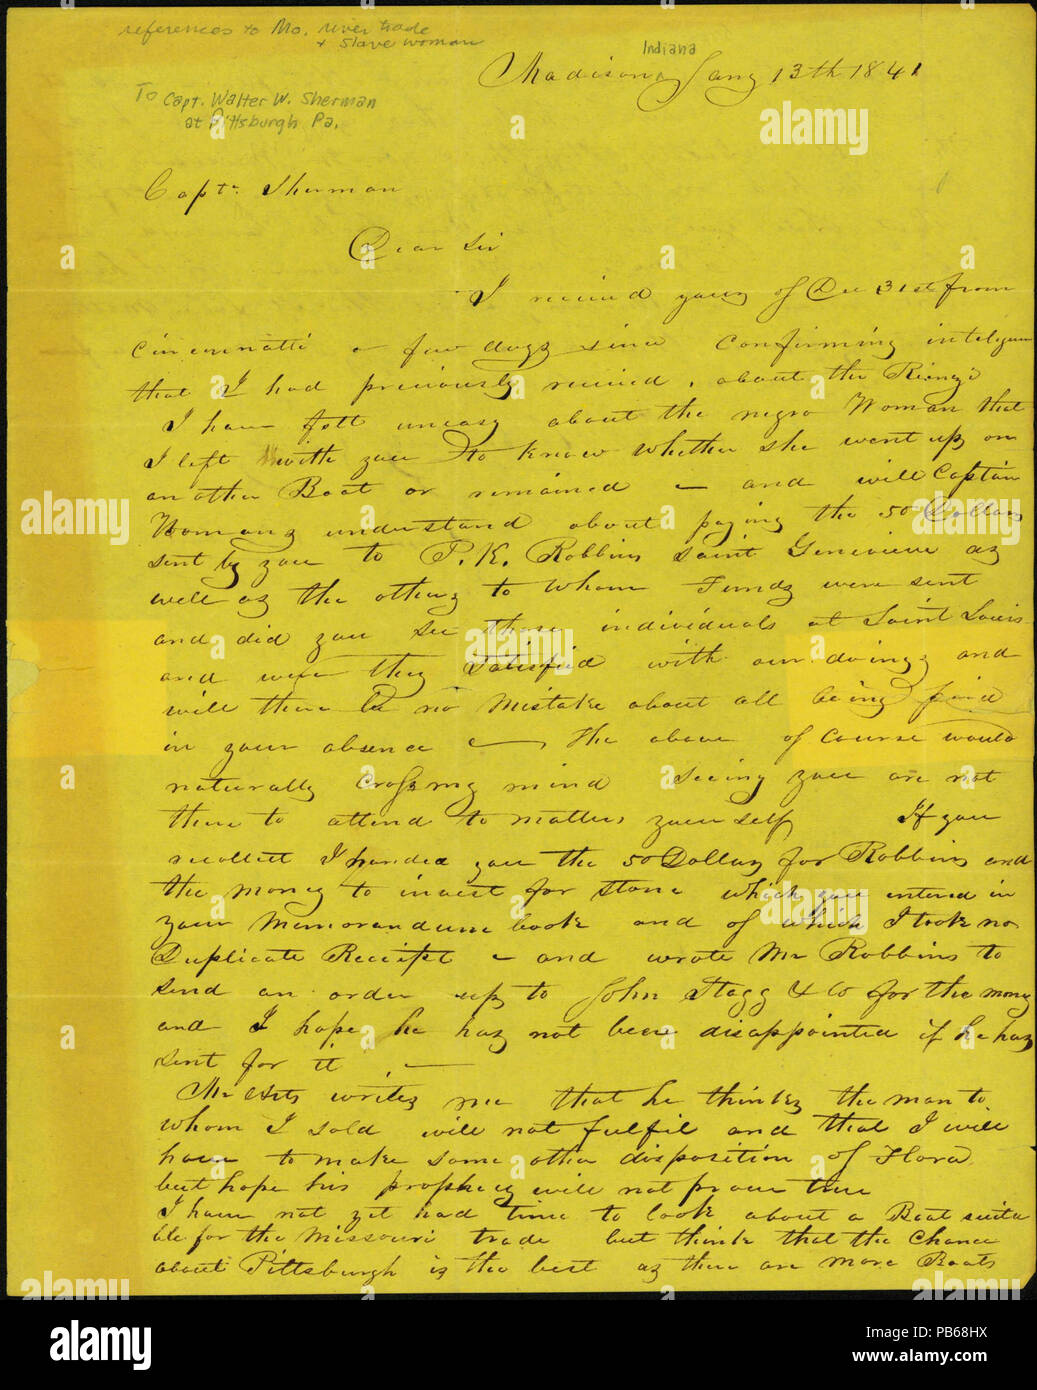 references to Mo. river trade
+ Slave woman
Indiana
Madison Jany 13th 1841
To Capt. Walter W. Sherman
at Pittsburgh Pa.
Capt. Sherman
Dear Sir
I received yours of Dec 31st from
Cincinnatti a few days since confirming
that I had previously received, about the
I have felt uneasy about the negro Woman that
I left with you to know whether she went up on
another Boat or remained — and will Captain
understand about paying the 50 Dollars
sent by you to P. K. Robbins Saint Genevieve as
well as the others to whom Funds were sent
and did you see those individuals at Saint Louis
and were they Satisfied with our doings and
will there be no mistake about all being
in your absence — The above of course would
naturally cross my mind seeing you are not
there to attend to matters your self If you
recollect I handed you the 50 Dollars for Robbins and
the money to invest for stone which you entered in
your Memorandum book and of which I took no
Duplicate Receipt — and wrote Mr Robbins to
send an order up to John Stagg & Co for the money
and I hope he haz not been disappointed if he haz
sent for it —
Mr writes me that he thinks the man to
whom I sold will not fulfil and that I will
have to make some other disposition of Flora
but hope his prophecy will not prove true
I have not yet had time to look about a Boat suita
ble for the Missouri trade but think that the Chance
about Pittsburgh is the best as there are more Boats
a alamy stock photo
alamy
Image ID: PB68HX
www.alamy.com